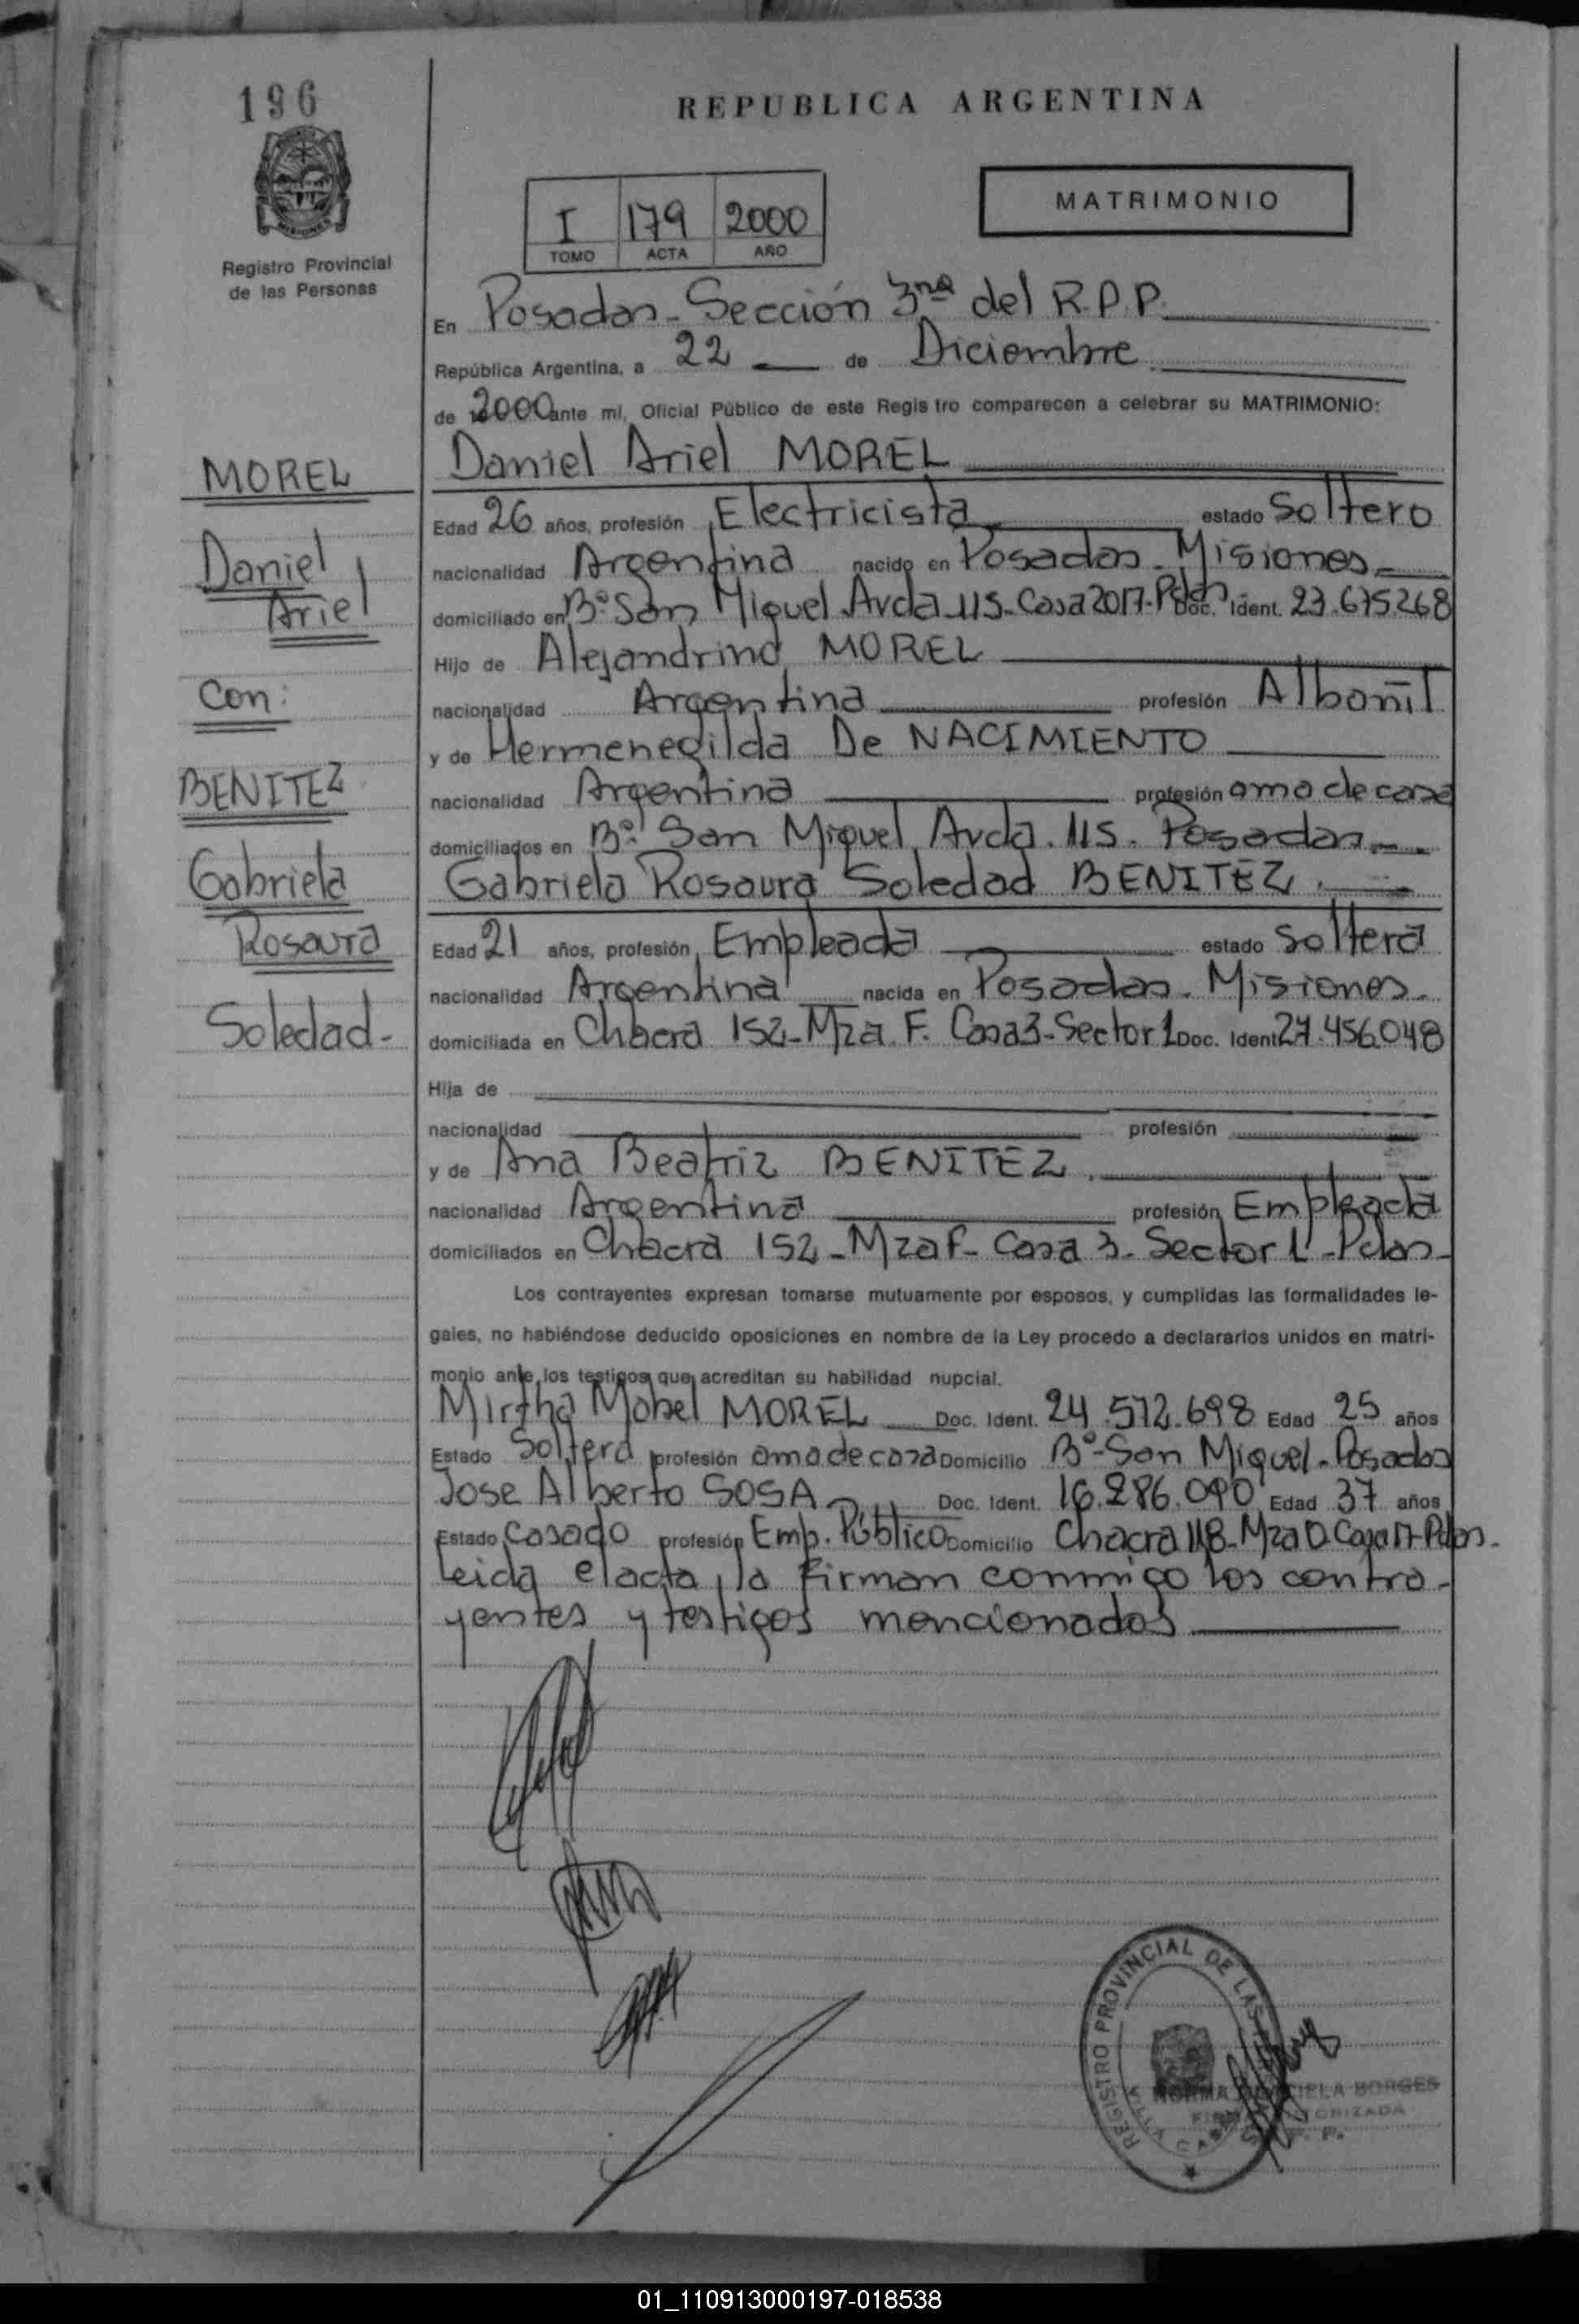 196
REPUBLICA ARGENTINA
MATRIMONIO
I 179 2000
TOMO ACTA AÑO
Registro Provincial
de las Personas
En Posadas - Sección 3ra del R.P.P.
República Argentina, a 22 de Diciembre
de 2000 ante mí, Oficial Público de este Registro comparecen a celebrar su MATRIMONIO:
MOREL
Daniel
Ariel
Con:
BENITEZ
Gabriela
Rosaura
Soledad-
Daniel Ariel MOREL
Edad 26 años, profesión Electricista estado Soltero
nacionalidad Argentina nacido en Posadas - Misiones
domiciliado en Bº San Miguel Avda 115- Casa 2017- Pdas Doc. Ident. 23.675.268
Hijo de Alejandrino MOREL
nacionalidad Argentina profesión Albañil
y de Hermenegilda De NACIMIENTO
nacionalidad Argentina profesión ama de casa
domiciliados en Bº San Miguel Avda. 115. Posadas
Gabriela Rosaura Soledad BENITEZ
Edad 21 años, profesión Empleada estado Soltera
nacionalidad Argentina nacida en Posadas - Misiones
domiciliada en Chacra 152-Mza. F. Casa 3-Sector 1 Doc. Ident 27.456.048
Hija de
nacionalidad profesión
y de Ana Beatriz BENITEZ
nacionalidad Argentina profesión Empleada
domiciliados en Chacra 152 - Mza F - Casa 3 - Sector 1 - Pdas -
Los contrayentes expresan tomarse mutuamente por esposos, y cumplidas las formalidades le-
gales, no habiéndose deducido oposiciones en nombre de la Ley procedo a declararlos unidos en matri-
monio ante los testigos que acreditan su habilidad nupcial.
Mirtha Mabel MOREL Doc. Ident. 24.572.698 Edad 25 años
Estado Soltera profesión ama de casa Domicilio Bº San Miguel - Posadas
Jose Alberto SOSA Doc. Ident. 16.286.090 Edad 37 años
Estado Casado profesión Emp. Público Domicilio Chacra 118-Mza D Casa 17-Pdas.
Leida el acta, la firman conmigo los contra-
yentes y testigos mencionados
REGISTRO PROVINCIAL DE LAS
BORGES
01_110913000197-018538